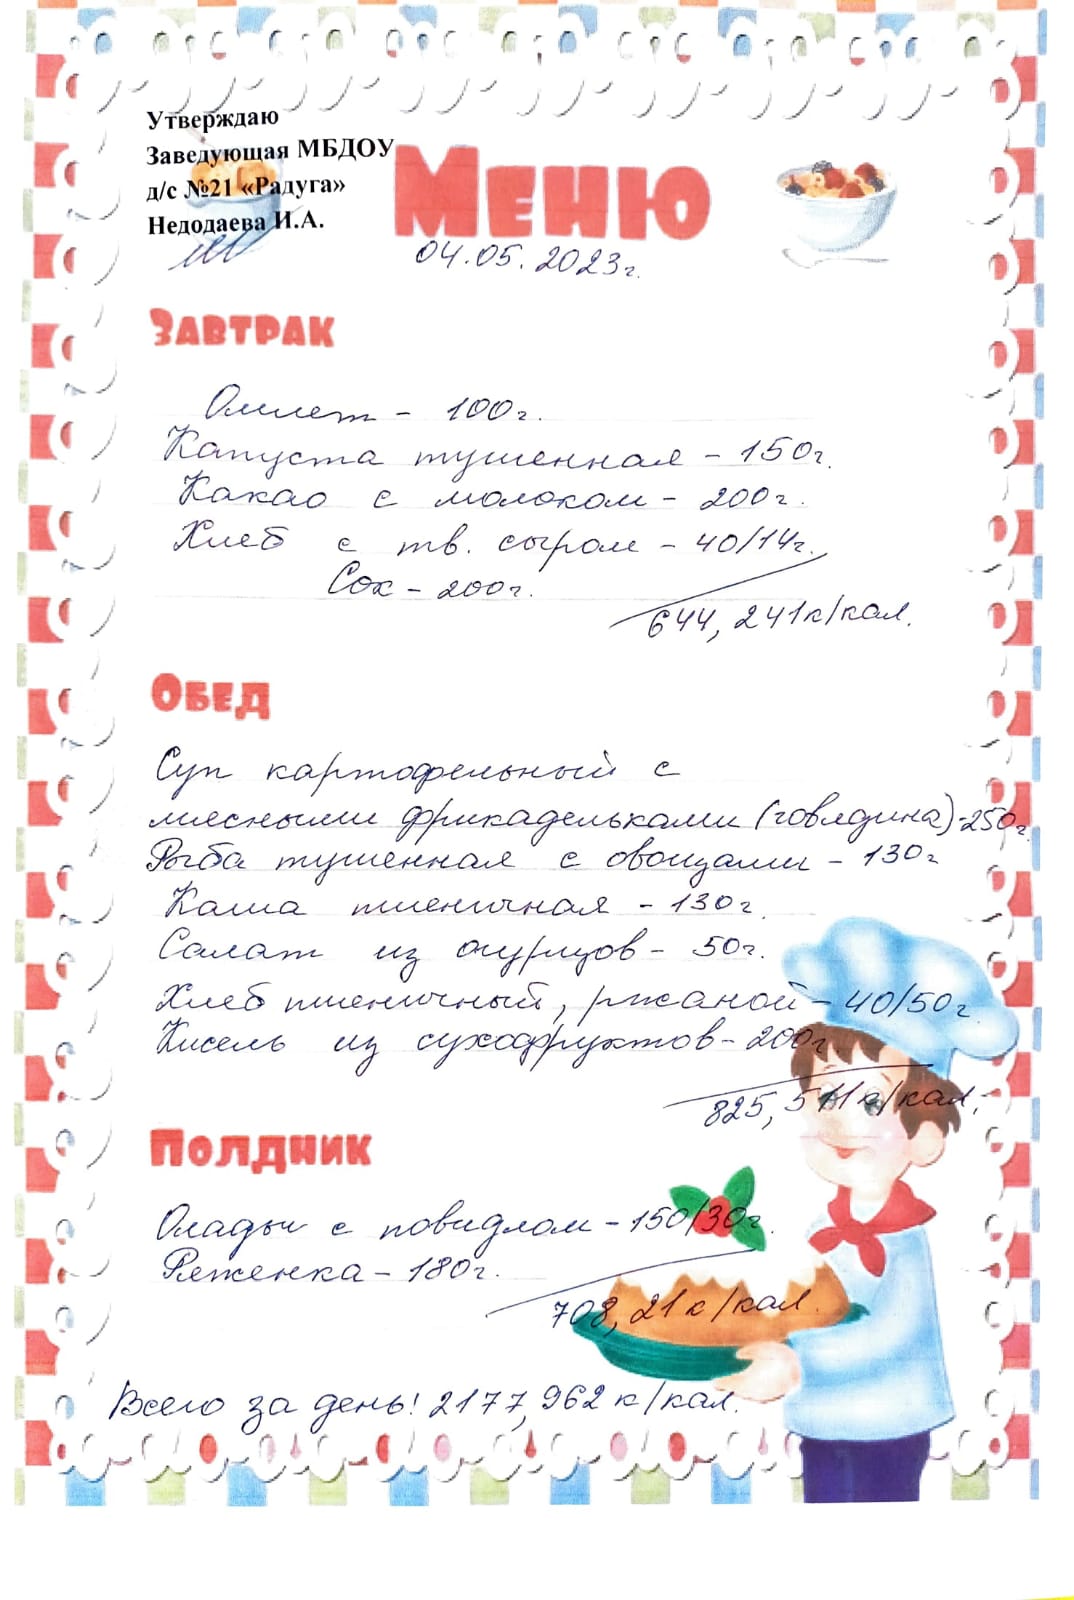 Утверждаю
Заведующая МБДОУ
д/с №21 «Радуга»
Недодаева И.А.
Меню
04.05.2023г.
Завтрак
Омлет - 100г.
Капуста тушенная - 150г.
Какао с молоком - 200г.
Хлеб с тв. сыром - 40/14г.
Сок - 200г.
644,241к/кал.
Обед
Суп картофельный с
мясными фрикадельками (говядина)-250г.
Рыба тушенная с овощами - 130г
Каша пшеничная - 130г.
Салат из огурцов - 50г.
Хлеб пшеничный, ржаной - 40/50г
Кисель из сухофруктов - 200г
825,511к/кал.
Полдник
Оладьи с повидлом - 150/30г.
Ряженка - 180г.
708,21к/кал.
Всего за день! 2177,962 к/кал.